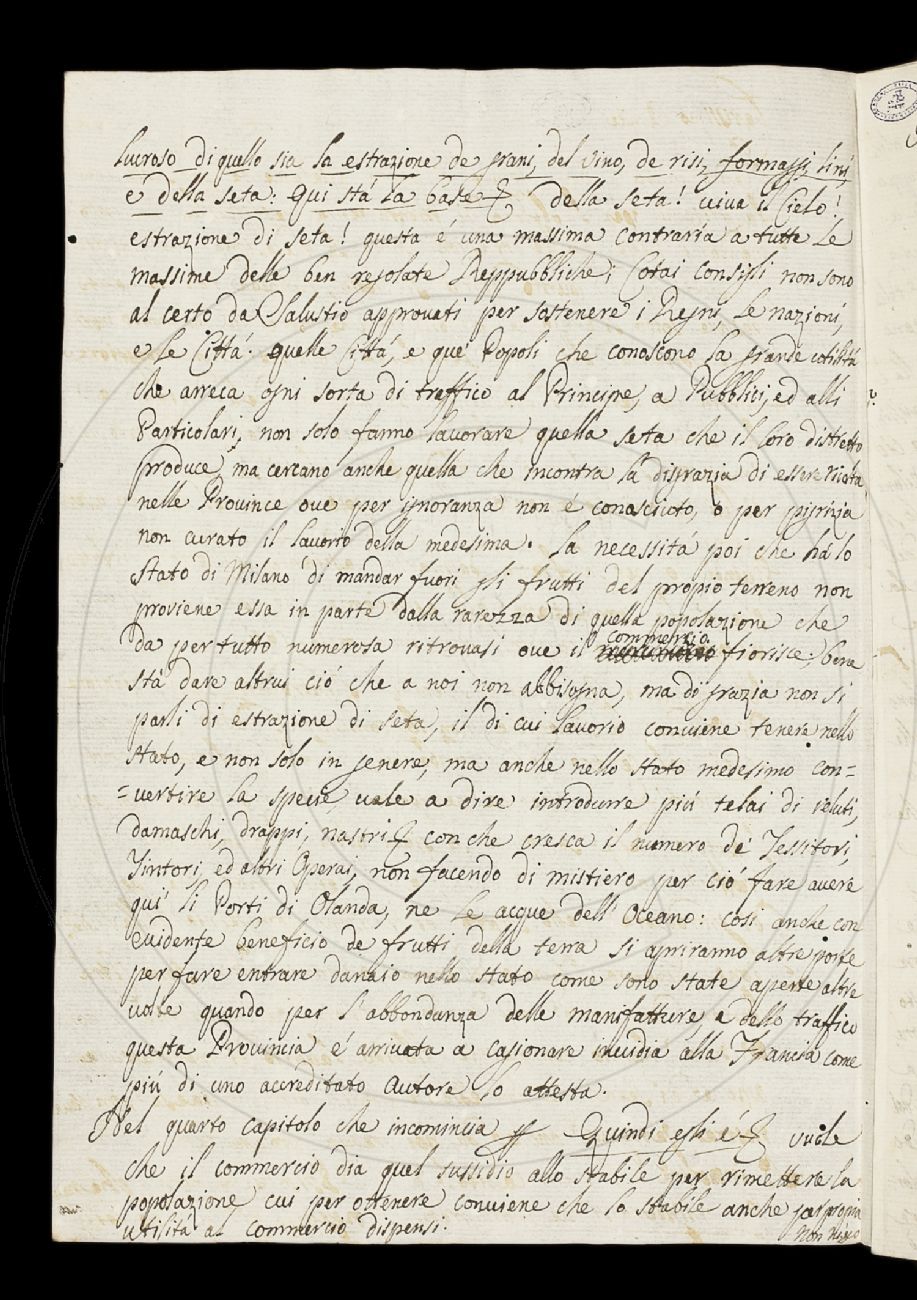 lucroso di quello sia la estrazione de grani, del vino, de risi, formaggi, lini,
e della seta: qui stá la base &. della seta! viva il Cielo!
estrazione di seta! questa é una massima contraria a tutte le
massime delle ben regolate Reppubbliche; Cotai consigli non sono
al certo da Salustio approvati per sostenere i Regni, le nazioni,
e le Cittá. quelle Cittá, e que' Popoli che conoscono la grande utilitá
che arreca ogni sorta di traffico al Principe, a Pubblici, ed alli
Particolari, non solo fanno lavorare quella seta che il loro distretto
produce, ma cercano anche quella che incontra la disgrazia di essere
nelle Province ove per ignoranza non é conosciuto, o per pigrizia
non curato il lavorio della medesima. La necessitá poi che há lo
Stato di Milano di mandar fuori gli frutti del propio terreno non
proviene essa in parte dalla rarezza di quella popolazione che
da per tutto numerosa ritrovasi ove il commercio fiorisce; bene
stá dare altrui ció che a noi non abbisogna, ma di grazia non si
parli di estrazione di seta, il di cui lavorio conviene tenere nello
stato, e non solo in genere, ma anche nello stato medesimo con=
=vertire la specie, vale a dire introdurre piú telai di veluti,
damaschi, drappi, nastri & con che cresca il numero de' Tessitori,
Tintori, ed altri Operai, non facendo di mistiero per ció fare avere
qui li Porti di Olanda, ne le acque dell' Oceano: cosi anche con
evidente beneficio de frutti della terra si apriranno altre porte
per fare entrare danaio nello stato come sono state aperte altre
volte quando per l'abbondanza delle manifatture, e dello traffico
questa Provincia é arrivata a casionare invidia alla Francia come
piú di uno accreditato Autore lo attesta.
Nel quarto capitolo che incomincia Quindi egli é & vuole
che il commercio dia quel sussidio allo stabile per rimettere la
popolazione, cui per ottenere conviene che lo stabile anche per propia
utilitá al commercio dispensi: